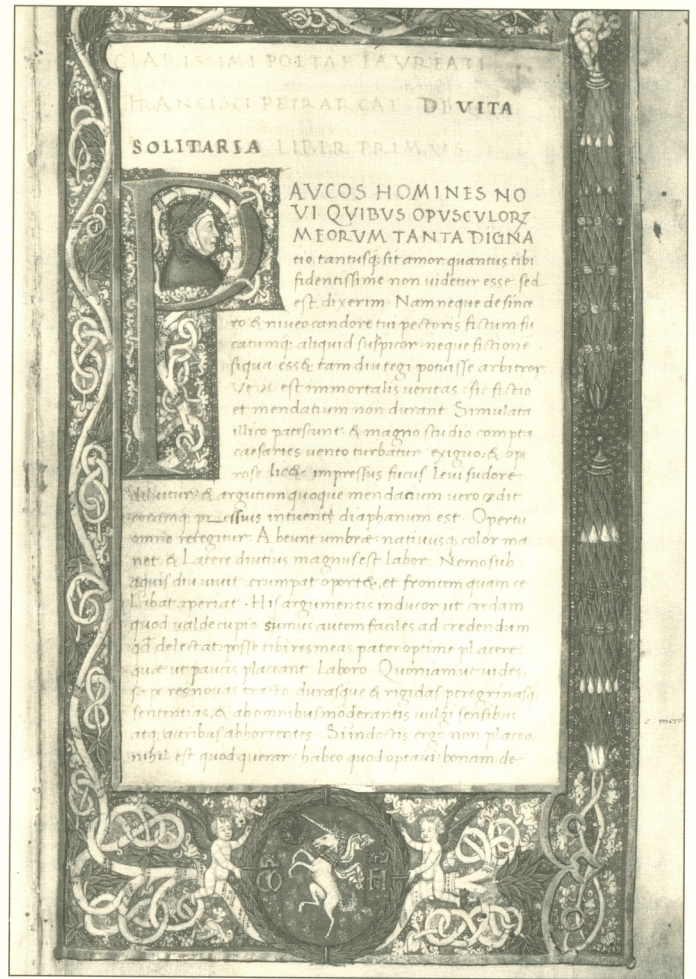 CLARISSIMI POETAE LAVREATI
FRANCISCI PETRARCAE DE VITA
SOLITARIA LIBER PRIMVS
PAUCOS HOMINES NO
VI QUIBUS OPUSCULORZ
MEORUM TANTA DIGNA
tio, tantusq; sit amor, quantus tibi
fidentissime non videtur esse sed
est, dixerim. Nam neque de since
ro & niveo candore tui pectoris fictum fu
catumq; aliquid suspicor, neque fictione
siqua ess& tam diu tegi potuisse arbitror.
Ut est immortalis veritas, sic fictio
et mendatium non durant. Simulata
illico patescunt & magno studio compta
caesaries vento turbatur exiguo, & op
rose lic& impressus fucus levi sudore
diluitur, & argutum quoque mendatium vero cedit
intuenti diaphanum est. Opertu
omne retegitur. Abeunt umbræ nativusq; color ma
net, & Latere diutius magnus est labor. Nemo sub
aquis diu vivit, erumpat oport&, et frontem quam ce
labat aperiat. His argumentis inducor ut credam
quod valde cupio sumus autem faciles ad credendum
qd delectat: posse tibi res meas pater optime placere
quæ ut paucis placeant Laboro. Quoniam ut vides
sepe res novas tracto durasque & rigidas peregrinasq;
sententias, & ab omnibus moderantis vulgi sensibus
atq; auribus abhorrentes. Si indoctis ergo non placeo,
nihil est quod querar. habeo quod optavi bonam de